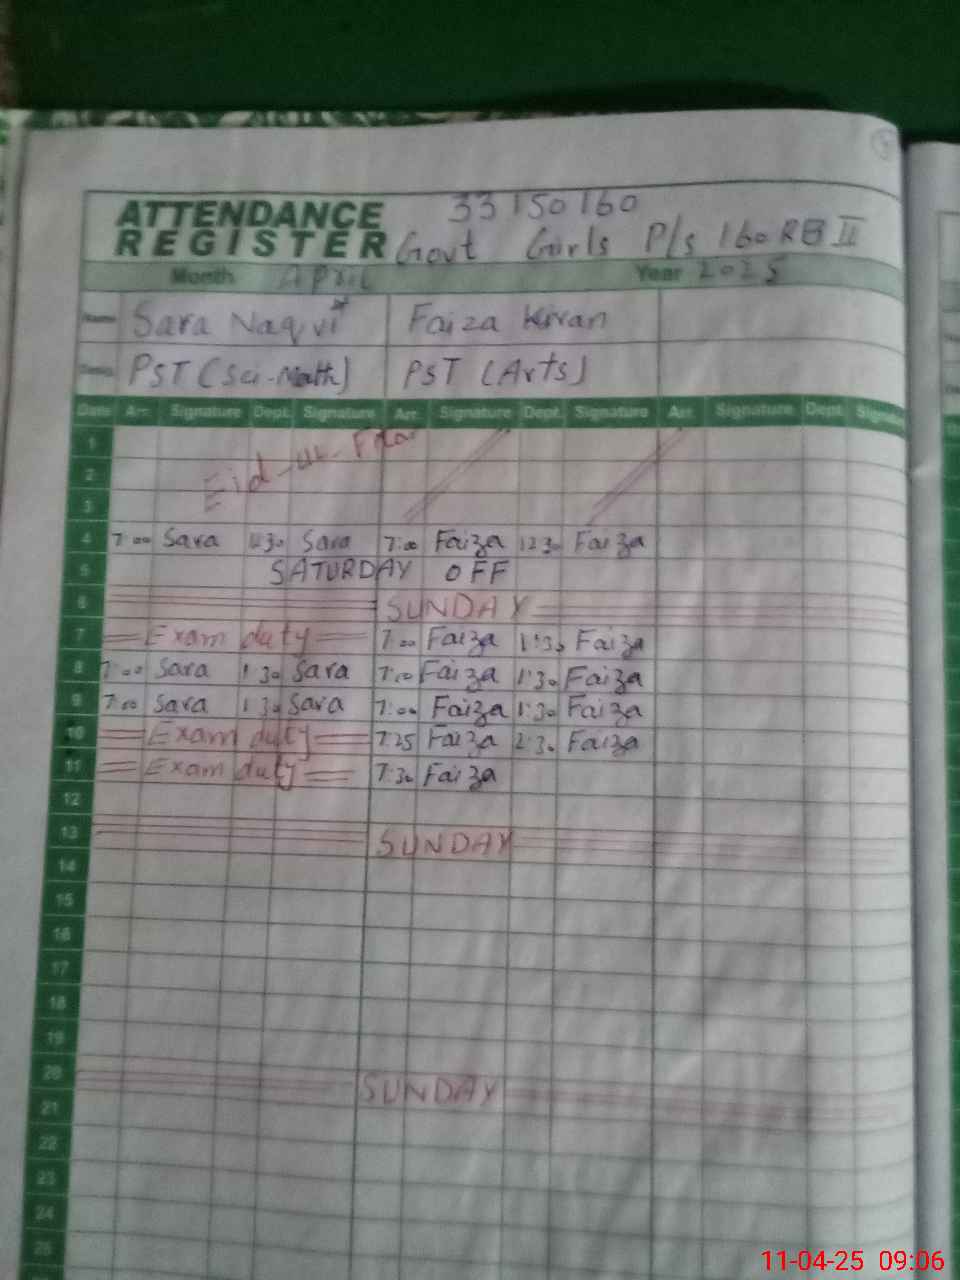 33150160
ATTENDANCE
REGISTER Govt Girls P/s 160 RB II
Month April Year 2025
Name Sara Naqvi Faiza Kiran
PST (Sci-Math) PST (Arts)
Date Arr. Signature Dept. Signature Arr. Signature Dept. Signature Arr. Signature Dept. Signature
1
Eid-ul-
2
3
4 7:00 Sara 12:30 Sara 7:00 Faiza 12:30 Faiza
5 SATURDAY OFF
6 SUNDAY
7 Exam duty 7:00 Faiza 1:30 Faiza
8 7:00 Sara 1:30 Sara 7:00 Faiza 1:30 Faiza
9 7:00 Sara 1:30 Sara 7:00 Faiza 1:30 Faiza
10 Exam duty 7:25 Faiza 2:30 Faiza
11 Exam duty 7:30 Faiza
12
13 SUNDAY
14
15
16
17
18
19
20 SUNDAY
21
22
23
24
25
11-04-25 09:06